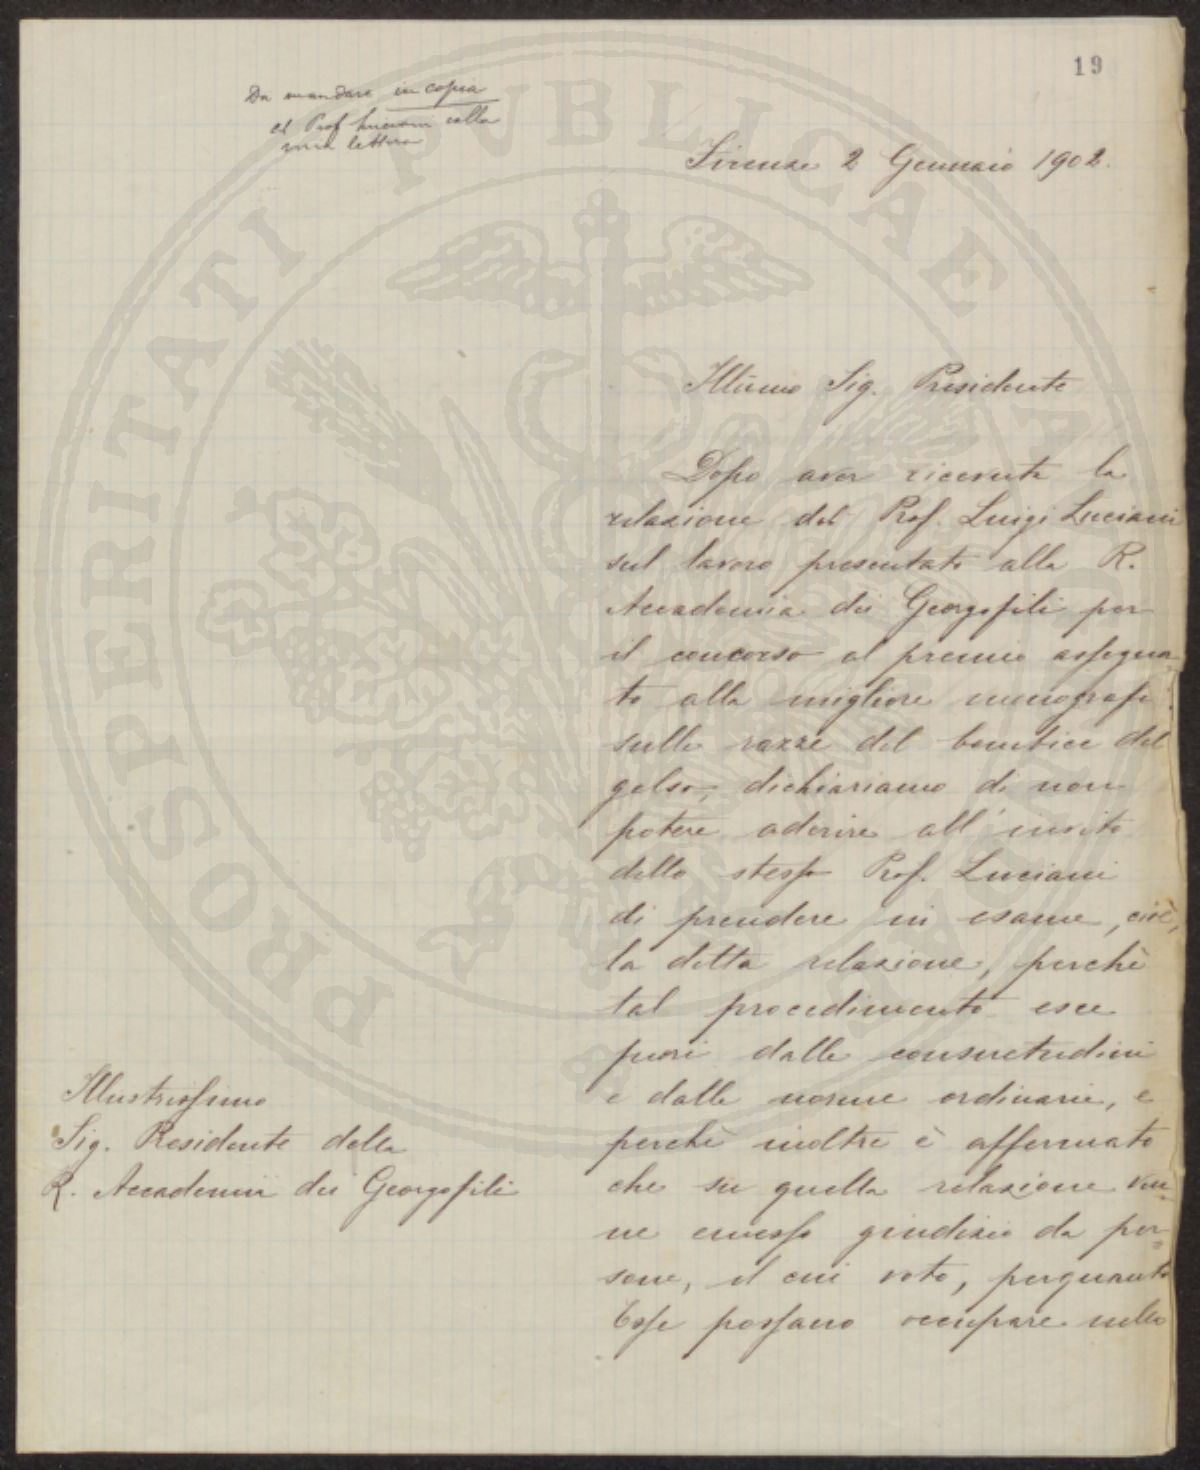 19
Da mandare in copia
al Prof Luciani colla
mia lettera
Firenze 2 Gennaio 1902.
Illũmo Sig. Presidente
Dopo aver ricevuta la
relazione del Prof. Luigi Luciani
sul lavoro presentato alla R.
Accademia dei Georgofili per
il concorso al premio assegna-
to alla migliore monografia
sulle razze del bombice del
gelso, dichiariamo di non
potere aderire all'invito
dello stesso Prof. Luciani
di prendere in esame, cioè,
la detta relazione, perchè
tal procedimento esce
fuori dalle consuetudini
e dalle norme ordinarie, e
perchè inoltre è affermato
che su quella relazione ven-
ne emesso giudizio da per-
sone, il cui voto, perquanto
Esse possano occupare nella
Illustrissimo
Sig. Presidente della
R. Accademia dei Georgofili
PROSPERITATI PUBLICAE